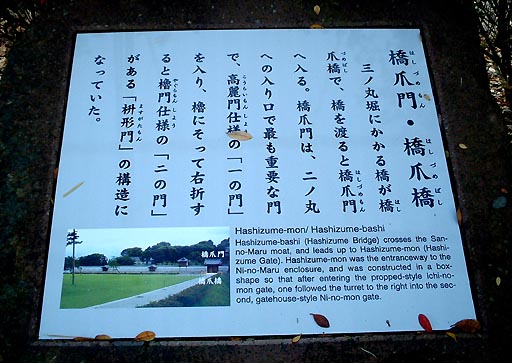 橋爪門・橋爪橋
はしづめもん はしづめばし
三ノ丸堀にかかる橋が橋
はし
爪橋で、橋を渡ると橋爪門
づめばし はしづめもん
へ入る。橋爪門は、二ノ丸
への入り口で最も重要な門
で、高麗門仕様の「一の門」
こうらいもんしよう
を入り、櫓にそって右折す
ると櫓門仕様の「二の門」
やぐらもんしよう
がある「枡形門」の構造に
ますがたもん
なっていた。
Hashizume-mon/ Hashizume-bashi
Hashizume-bashi (Hashizume Bridge) crosses the San-
no-Maru moat, and leads up to Hashizume-mon (Hashi-
zume Gate). Hashizume-mon was the entranceway to the
Ni-no-Maru enclosure, and was constructed in a box-
shape so that after entering the propped-style Ichi-no-
mon gate, one followed the turret to the right into the sec-
ond, gatehouse-style Ni-no-mon gate.
橋爪門
橋爪橋